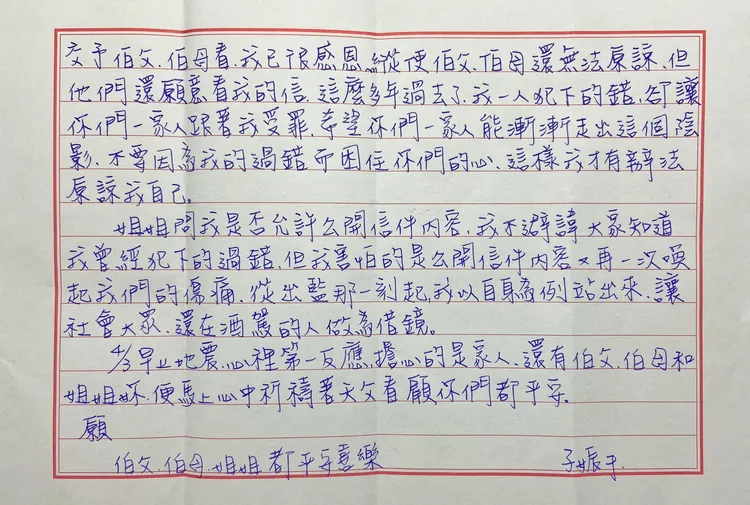 交予伯父、伯母看,我已很感恩,縱使伯父、伯母還無法原諒,但
他們還願意看我的信,這麼多年過去了,我一人犯下的錯,卻讓
你們一家人跟著我受罪,希望你們一家人能漸漸走出這個陰
影,不要因為我的過錯而困住你們的心,這樣我才有辦法
原諒我自己。
姐姐問我是否允許公開信件內容,我不避諱大家知道
我曾經犯下的過錯,但我害怕的是公開信件內容又再一次喚
起我們的傷痛,從出監那一刻起,我以自身為例站出來,讓
社會大眾、還在酒駕的人做為借鏡。
4/3早上地震,心裡第一反應,擔心的是家人、還有伯父、伯母和
姐姐妳,便馬上心中祈禱著天父看顧你們都平安。
願
伯父、伯母、姐姐都平安喜樂